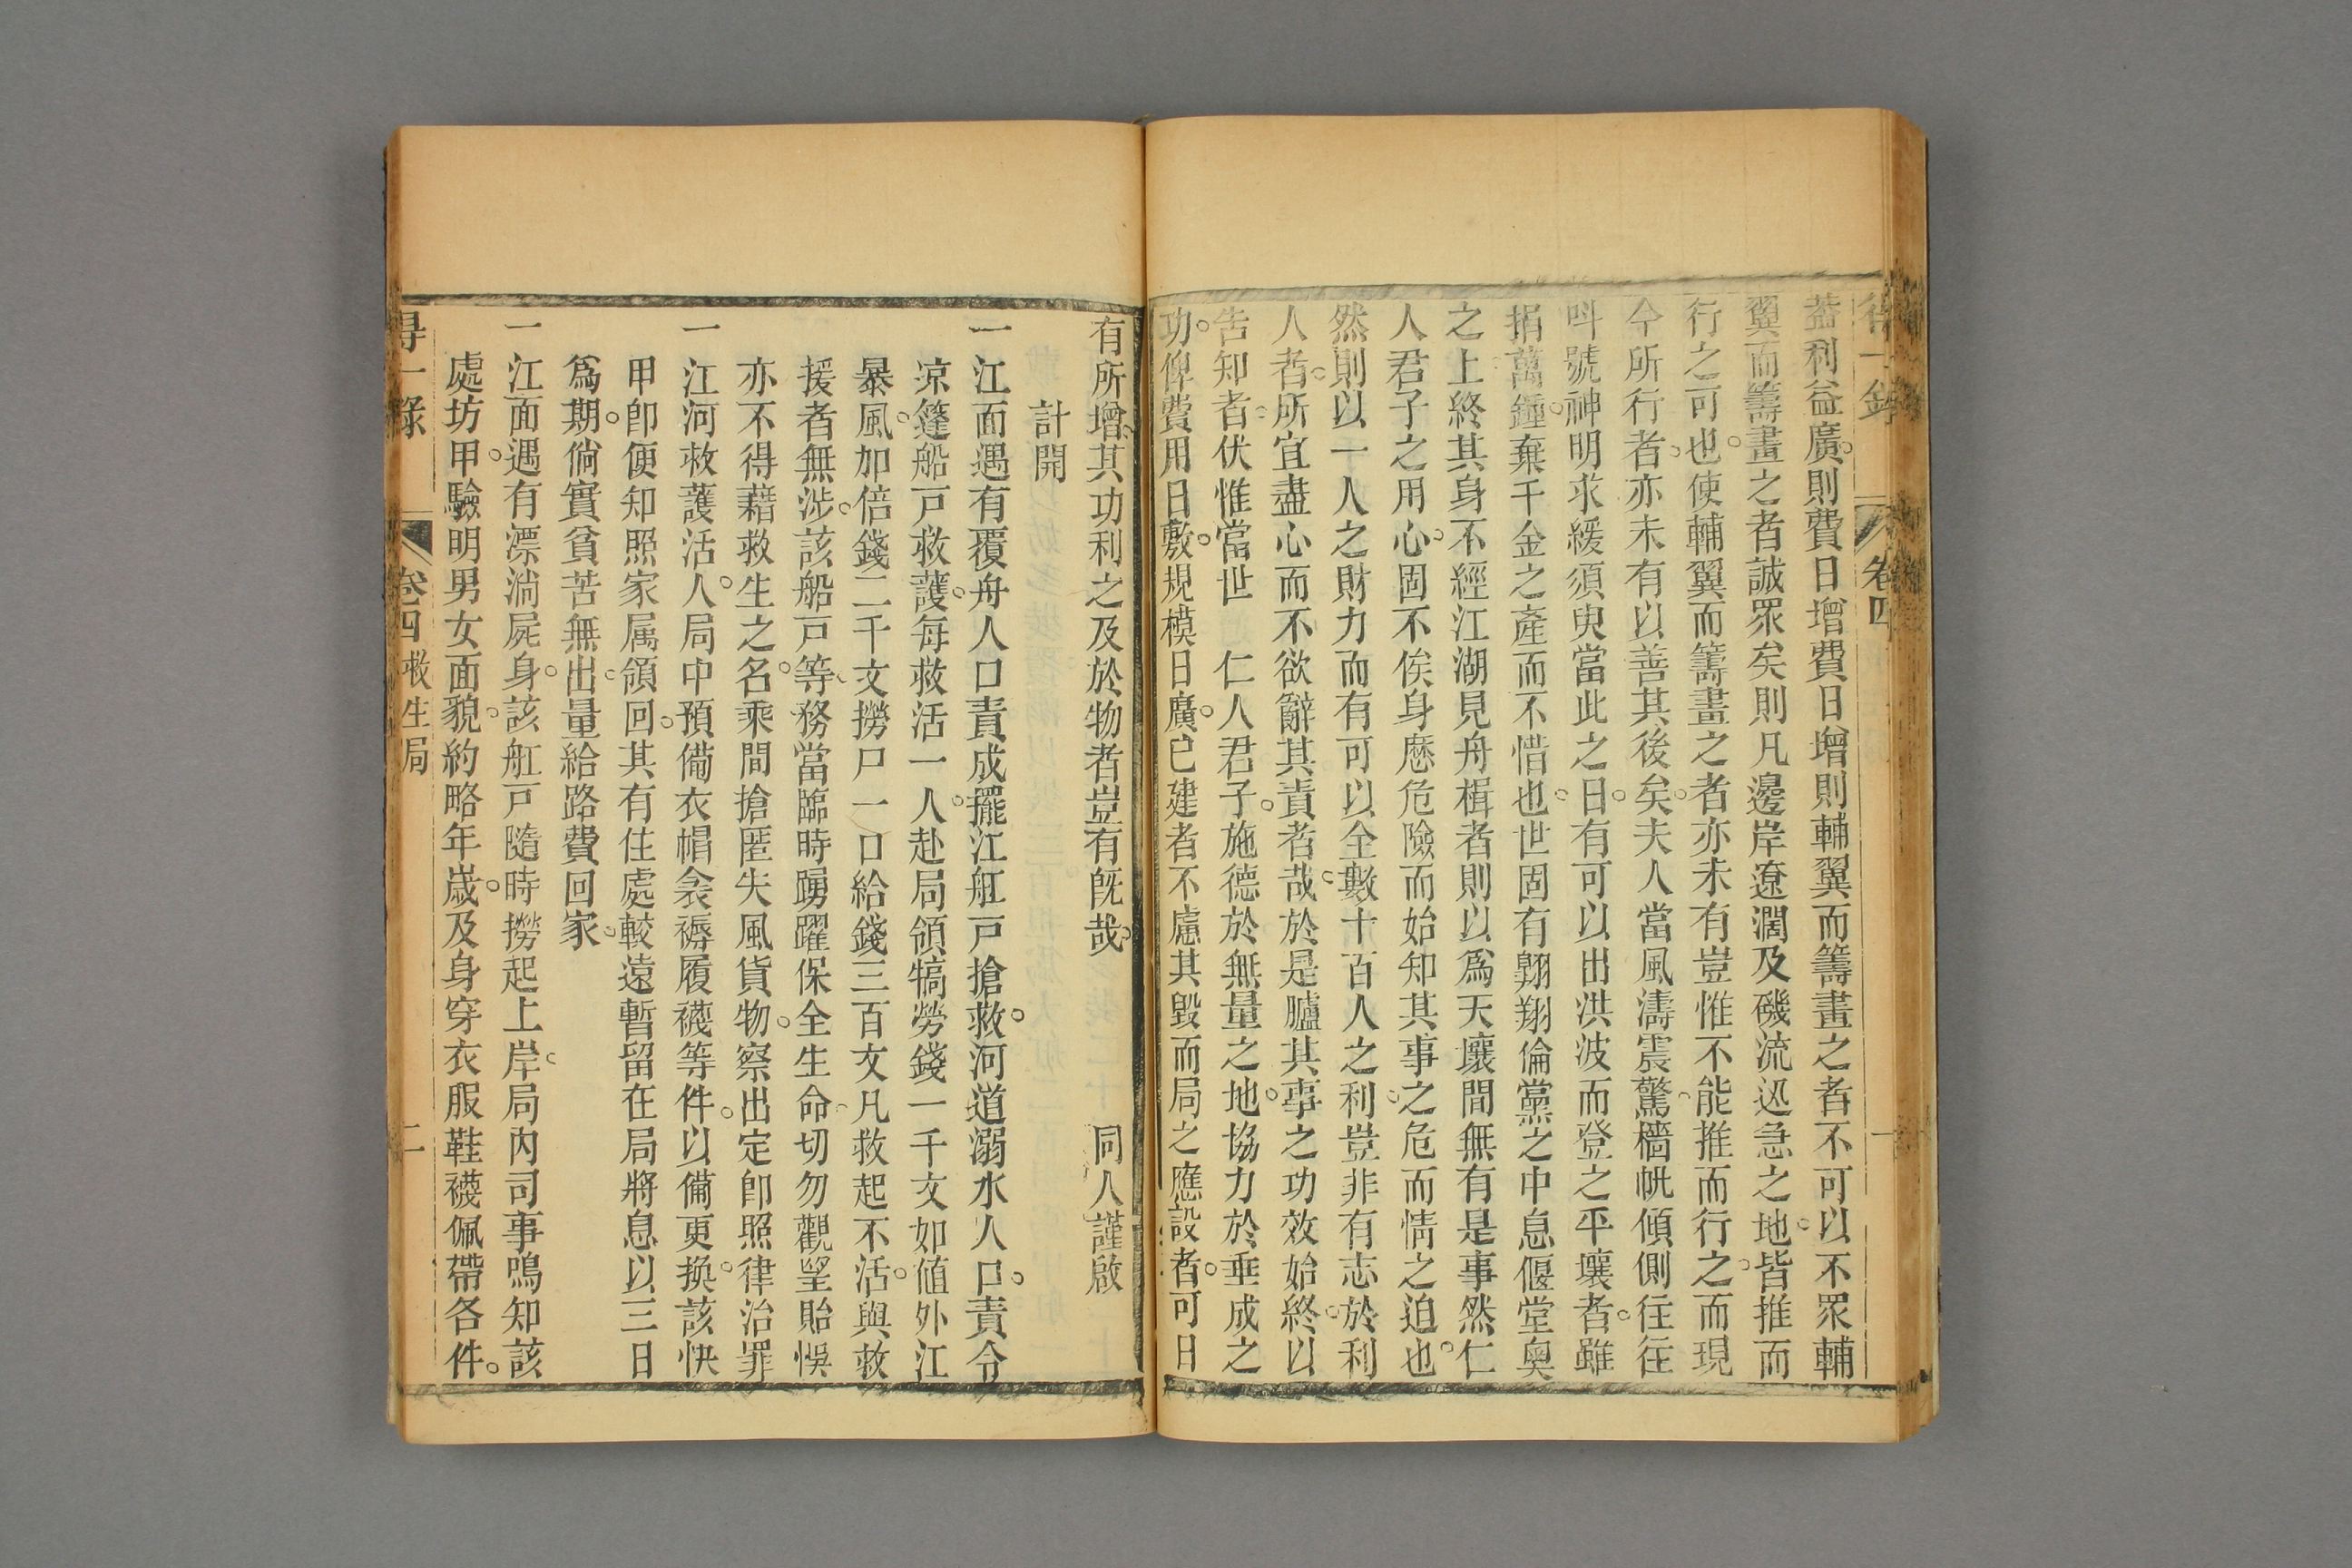 得一錄 卷四 一
蓋利益廣。則費日增費日增則輔翼而籌畫之者不可以不眾輔
翼而籌畫之者誠眾矣則凡邊岸遼濶及磯流迅急之地。皆推而
行之可也。使輔翼而籌畫之者亦未有豈惟不能推而行之。而現
今所行者。亦未有以善其後矣。夫人當風濤震驚。檣帆傾側往往
呌號神明求緩須臾當此之日。有可以出洪波而登之平壤者。雖
捐萬鍾。棄千金之產而不惜也。世固有翺翔倫黨之中息偃堂奧
之上終其身不經江湖見舟楫者則以爲天壤間無有是事然仁
人君子之用心。固不俟身歷危險而始知其事之危而情之迫也。
然則以一人之財力而有可以全數十百人之利。豈非有志於利
人者。所宜盡心而不欲辭其責者哉。於是臚其事之功效始終。以
告知者。伏惟當世 仁人君子。施德於無量之地。協力於垂成之
功。俾費用日敷。規模日廣。已建者不慮其毀而局之應設者。可日
有所增其功利之及於物者豈有既哉。 同人謹啟
計開
一江面遇有覆舟人口責成擺江舡戸搶救。河道溺水人口。責令
凉篷船戸救護。每救活一人。赴局領犒勞錢一千文如値外江
暴風。加倍錢二千文撈尸一口給錢三百文凡救起不活。與救
援者無涉。該船戸等。務當臨時踴躍保全生命。切勿觀望貽悞
亦不得藉救生之名。乘間搶匿失風貨物。察出定卽照律治罪
一江河救護活人。局中預備衣帽衾褥履襪等件。以備更換。該快
甲卽便知照家属領回。其有住處較遠暫留在局將息以三日
爲期。倘實貧苦無出。量給路費回家。
一江面遇有漂淌屍身。該舡戸隨時撈起上岸。局內司事鳴知該
處坊甲。驗明男女面貌。約略年歲。及身穿衣服鞋襪佩帶各件。
得一錄 卷四 救生局 二